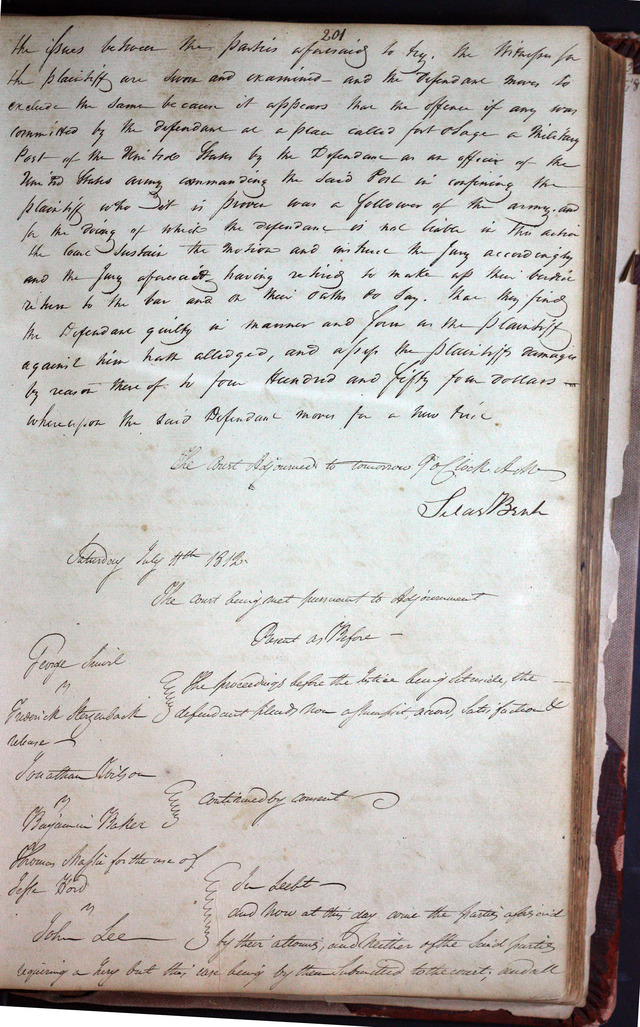 201
the issues between the parties aforesaid to try. the Witnesses for
the plaintiff are sworn and examined and the Defendant moves to
exclude the same because it appears that the offence if any was
committed by the defendant at a place called fort Osage a Military
Post of the United States by the Defendant as an officer of the
United States army commanding the said Post in confining the
plaintiff who it is proven was a follower of the army. and
for the doing of which the defendant is not liable in this action
the Court sustain the motion and instruct the Jury accordingly
and the Jury aforesaid having retired to make up their verdict
return to the bar and on their oaths do say. that they find
the Defendant guilty in manner and form as the plaintiff
against him hath alledged, and assess the plaintiffs damages
by reason there of to four Hundred and fifty four dollars —
whereupon the said Defendant moves for a new trial
The Court Adjourned to tomorrow 9 o Clock
Silas Bent
Saturday July 11th 1812
The court being met pursuant to Adjournment
Present as Before —
George
vs
The proceedings before the Justice being set aside, the —
Frederick
defendant pleads non assumpsit, accord, satisfaction &
release —
Jonathan Wilson
vs
continued by consent
Benjamin Baker
Thomas for the use of
Jesse
In Debt —
vs
and now at this day come the parties aforesaid
John Lee
by their attornies, and neither of the said parties
requiring a Jury but this case being by them submitted to the court; and all